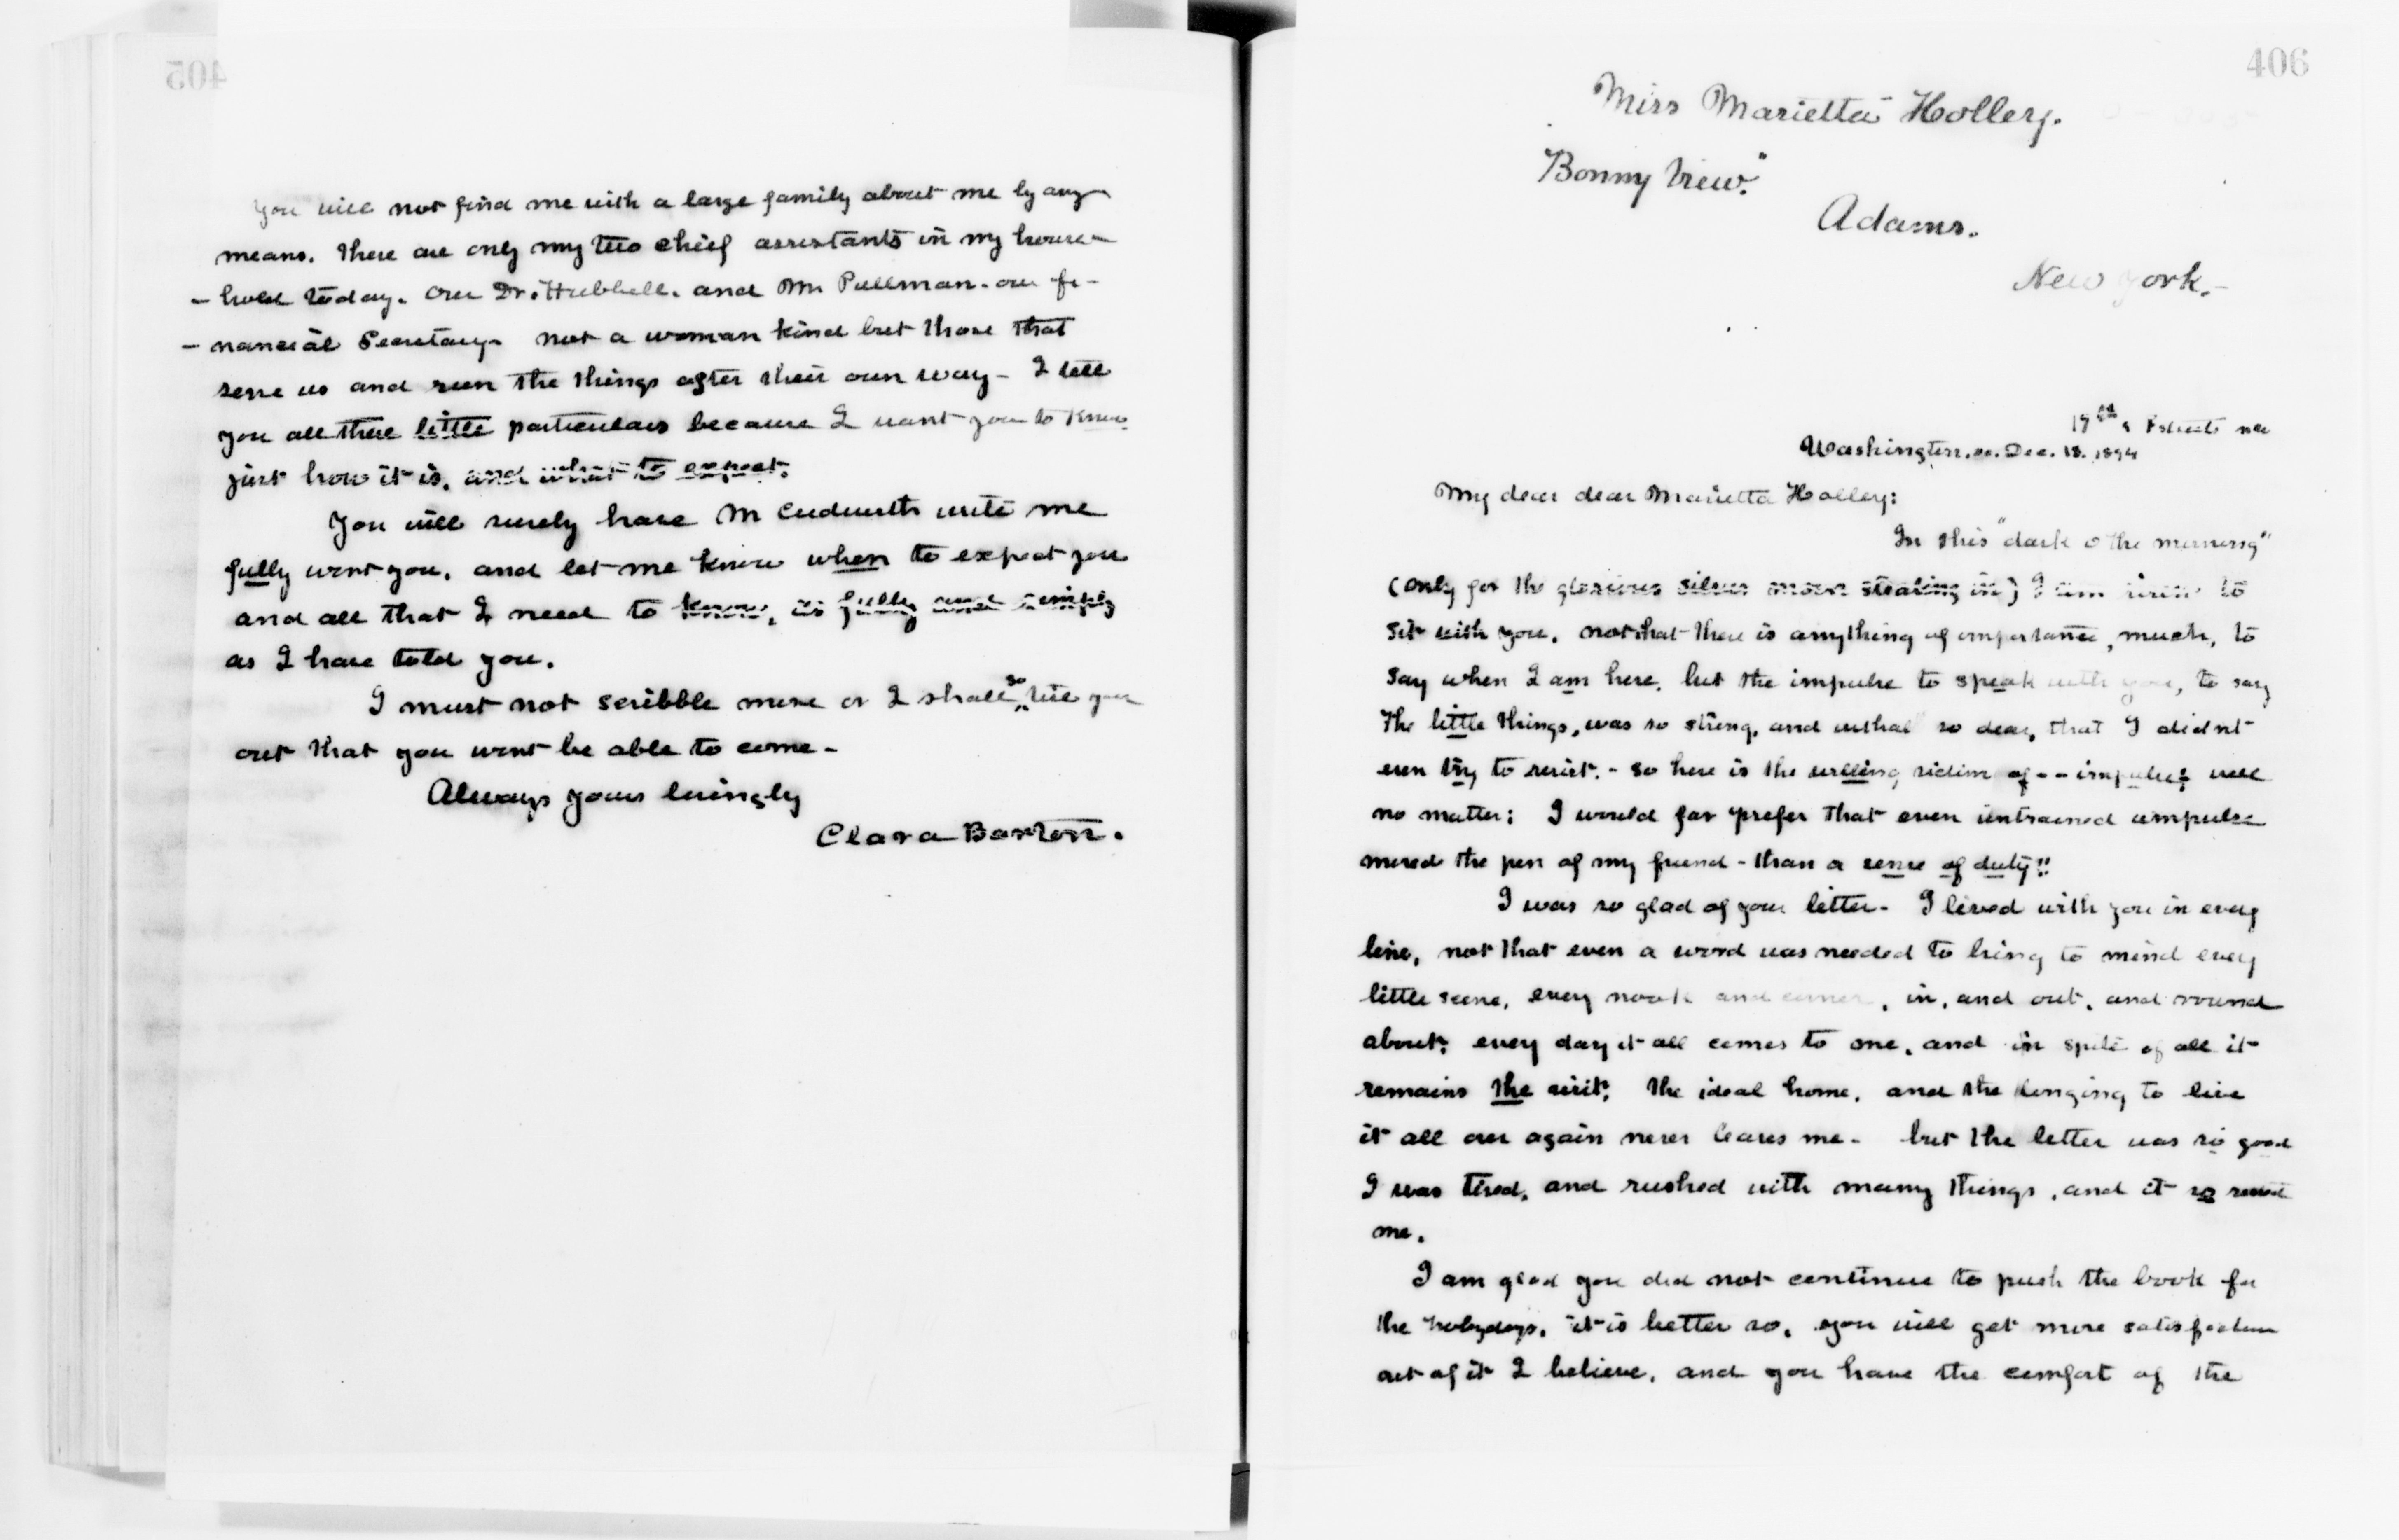 405
You will not find me with a large family about me by any
means. There are only my two chief assistants in my house-
- hold today. Our Dr. Hubbell. and Mr Pullman. our fi-
- nancial Secretary. not a woman kind but those that
serve us and run the things after their own way - I tell
you all these little particulars because I want you to know
just how it is. and what to expect.
You will surely have Mr Cudworth write me
fully wont you. and let me know when to expect you
and all that I need to know, as fully and simply
as I have told you.
I must not scribble more or I shall so tire you
out that you wont be able to come -
Always yours lovingly
Clara Barton.
406
Miss Marietta Holley.
"Bonny View."
Adams.
New York.-
17th & F streets nw
Washington. DC. Dec. 18. 1894
My dear dear Marietta Holley:
In this "dark o the morning"
(only for the glorious silver moon stealing in) I am
sit with you. not that there is anything of importance, much, to
say when I am here. but the impulse to speak with you, to say
the little things, was so strong, and withal so dear, that I didnt
even try to resist. - so here is the willing victim of - - impulse; well
no matter; I would far prefer that even untrained impulse
moved the pen of my friend - than a sense of duty!!
I was so glad of your letter - I lived with you in every
line, not that even a word was needed to bring to mind every
little scene, every nook and corner, in, and out, and round
about; every day it all comes to me, and in spite of all it
remains the visit; the ideal home, and the longing to live
it all over again never leaves me - but the letter was so good
I was tired, and rushed with many things, and it so rested
me.
I am glad you did not continue to push the book for
the holydays. it is better so. you will get more satisfaction
out of it I believe, and you have the comfort of the